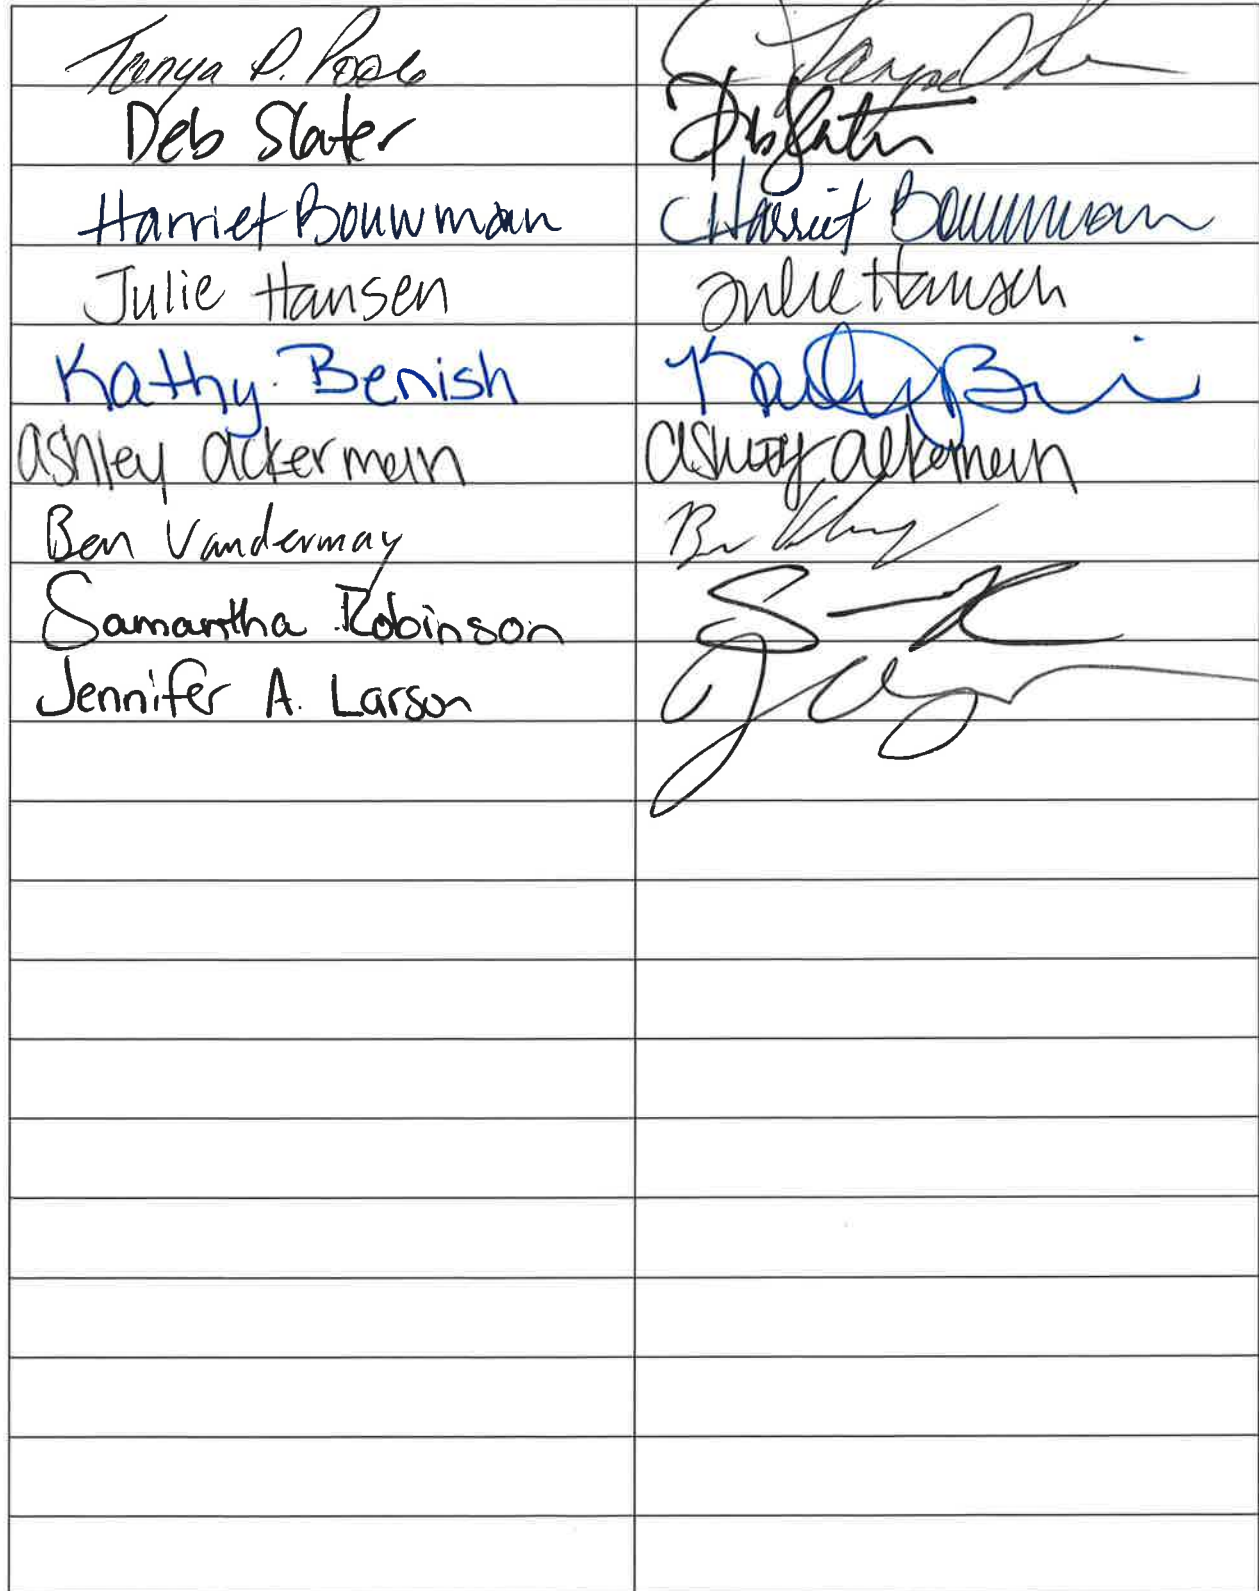 Tanya P. Poole
Deb Slater Deb Slater
Harriet Bouwman Harriet Bouwman
Julie Hansen Julie Hansen
Kathy Benish Kathy B
ashley ackerman ashley ackerman
Ben Vandermay Ben
Samantha Robinson
Jennifer A. Larson